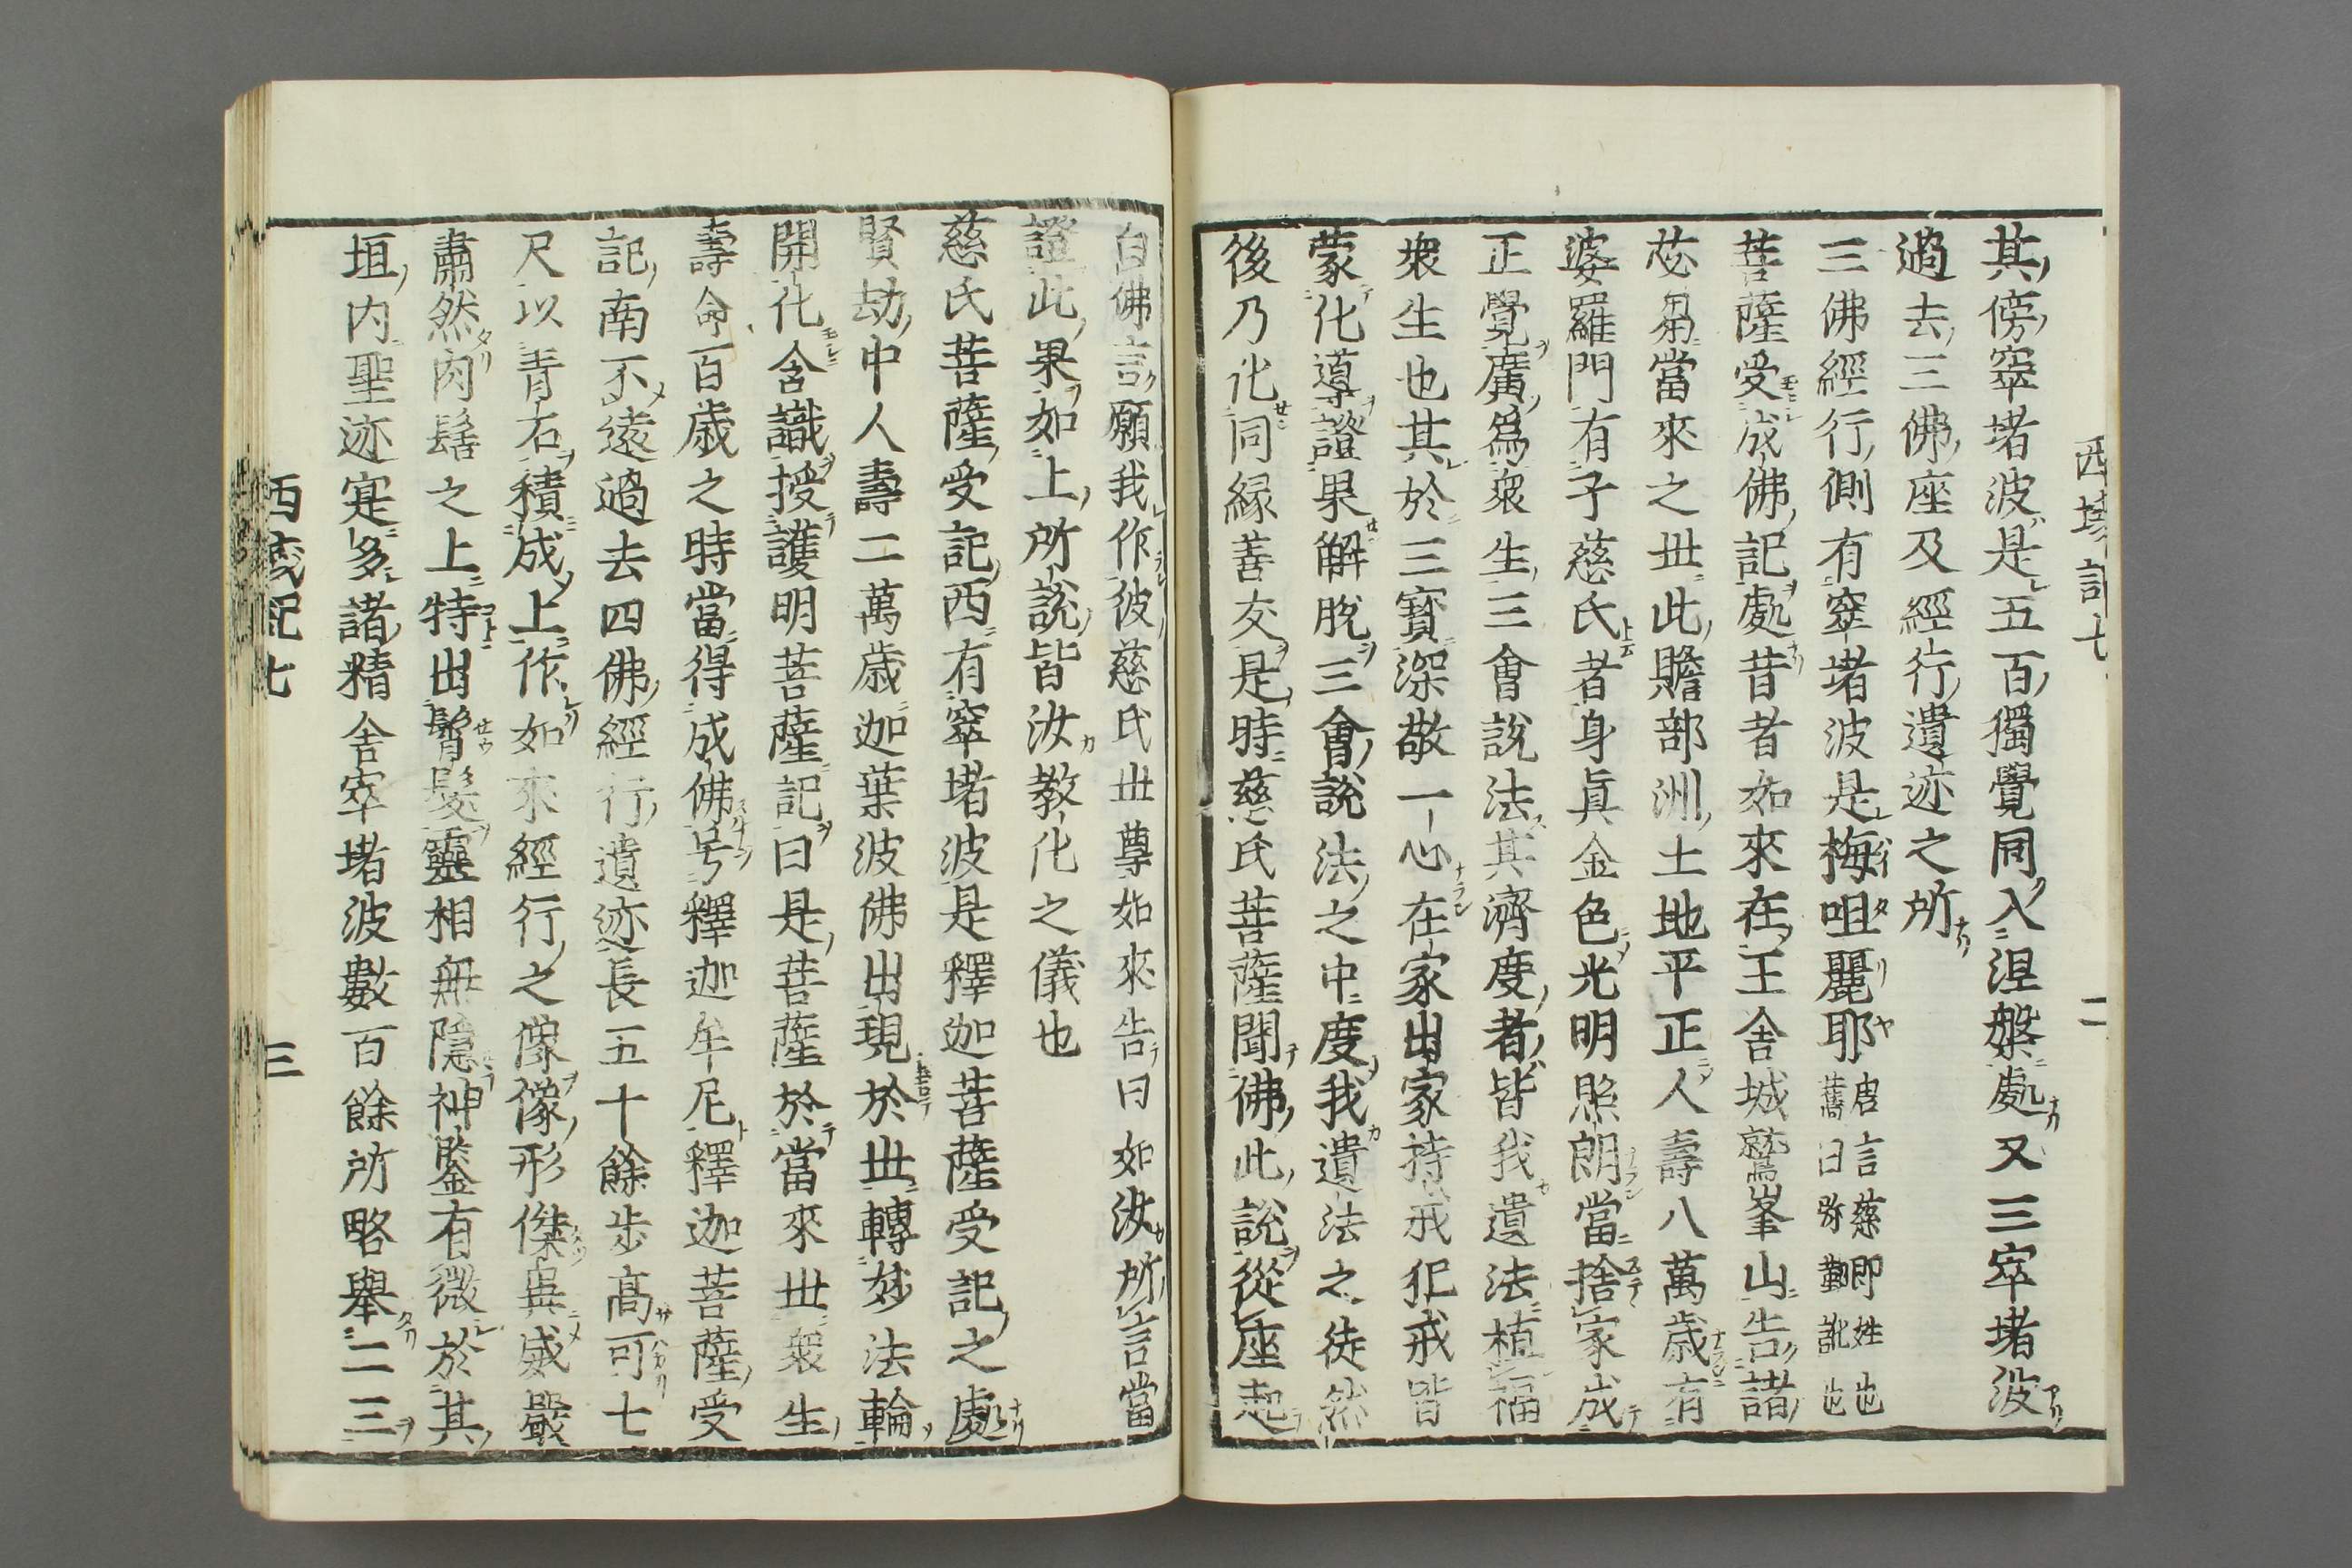 西域記七
二
其傍窣堵波是五百獨覺同入涅槃處又三窣堵波
過去三佛座及經行遺迹之所
三佛經行側有窣堵波是梅呾麗耶唐言慈即姓也舊曰弥勒訛也
菩薩受成佛記處昔者如來在王舍城鷲峯山告諸
苾芻當來之世此贍部洲土地平正人壽八萬歲有
婆羅門有子慈氏者身眞金色光明照朗當捨家成
正覺廣爲衆生三會說法其濟度者皆我遺法植福
衆生也其於三寶深敬一心在家出家持戒犯戒皆
蒙化導證果解脫三會說法之中度我遺法之徒然
後乃化同緣善友是時慈氏菩薩聞佛此說從座起
白佛言願我作彼慈氏世尊如來告曰如汝所言當
證此果如上所說皆汝教化之儀也
慈氏菩薩受記西有窣堵波是釋迦菩薩受記之處
賢劫中人壽二萬歲迦葉波佛出現於世轉妙法輪
開化含識授護明菩薩記曰是菩薩於當來世衆生
壽命百歲之時當得成佛号釋迦牟尼釋迦菩薩受
記南不遠過去四佛經行遺迹長五十餘步高可七
尺以青石積成上作如來經行之像像形傑異威嚴
肅然肉髻之上特出鬚髮靈相無隱神鑒有微於其
垣内聖迹寔多諸精舍窣堵波數百餘所略舉二三
西域記七
三